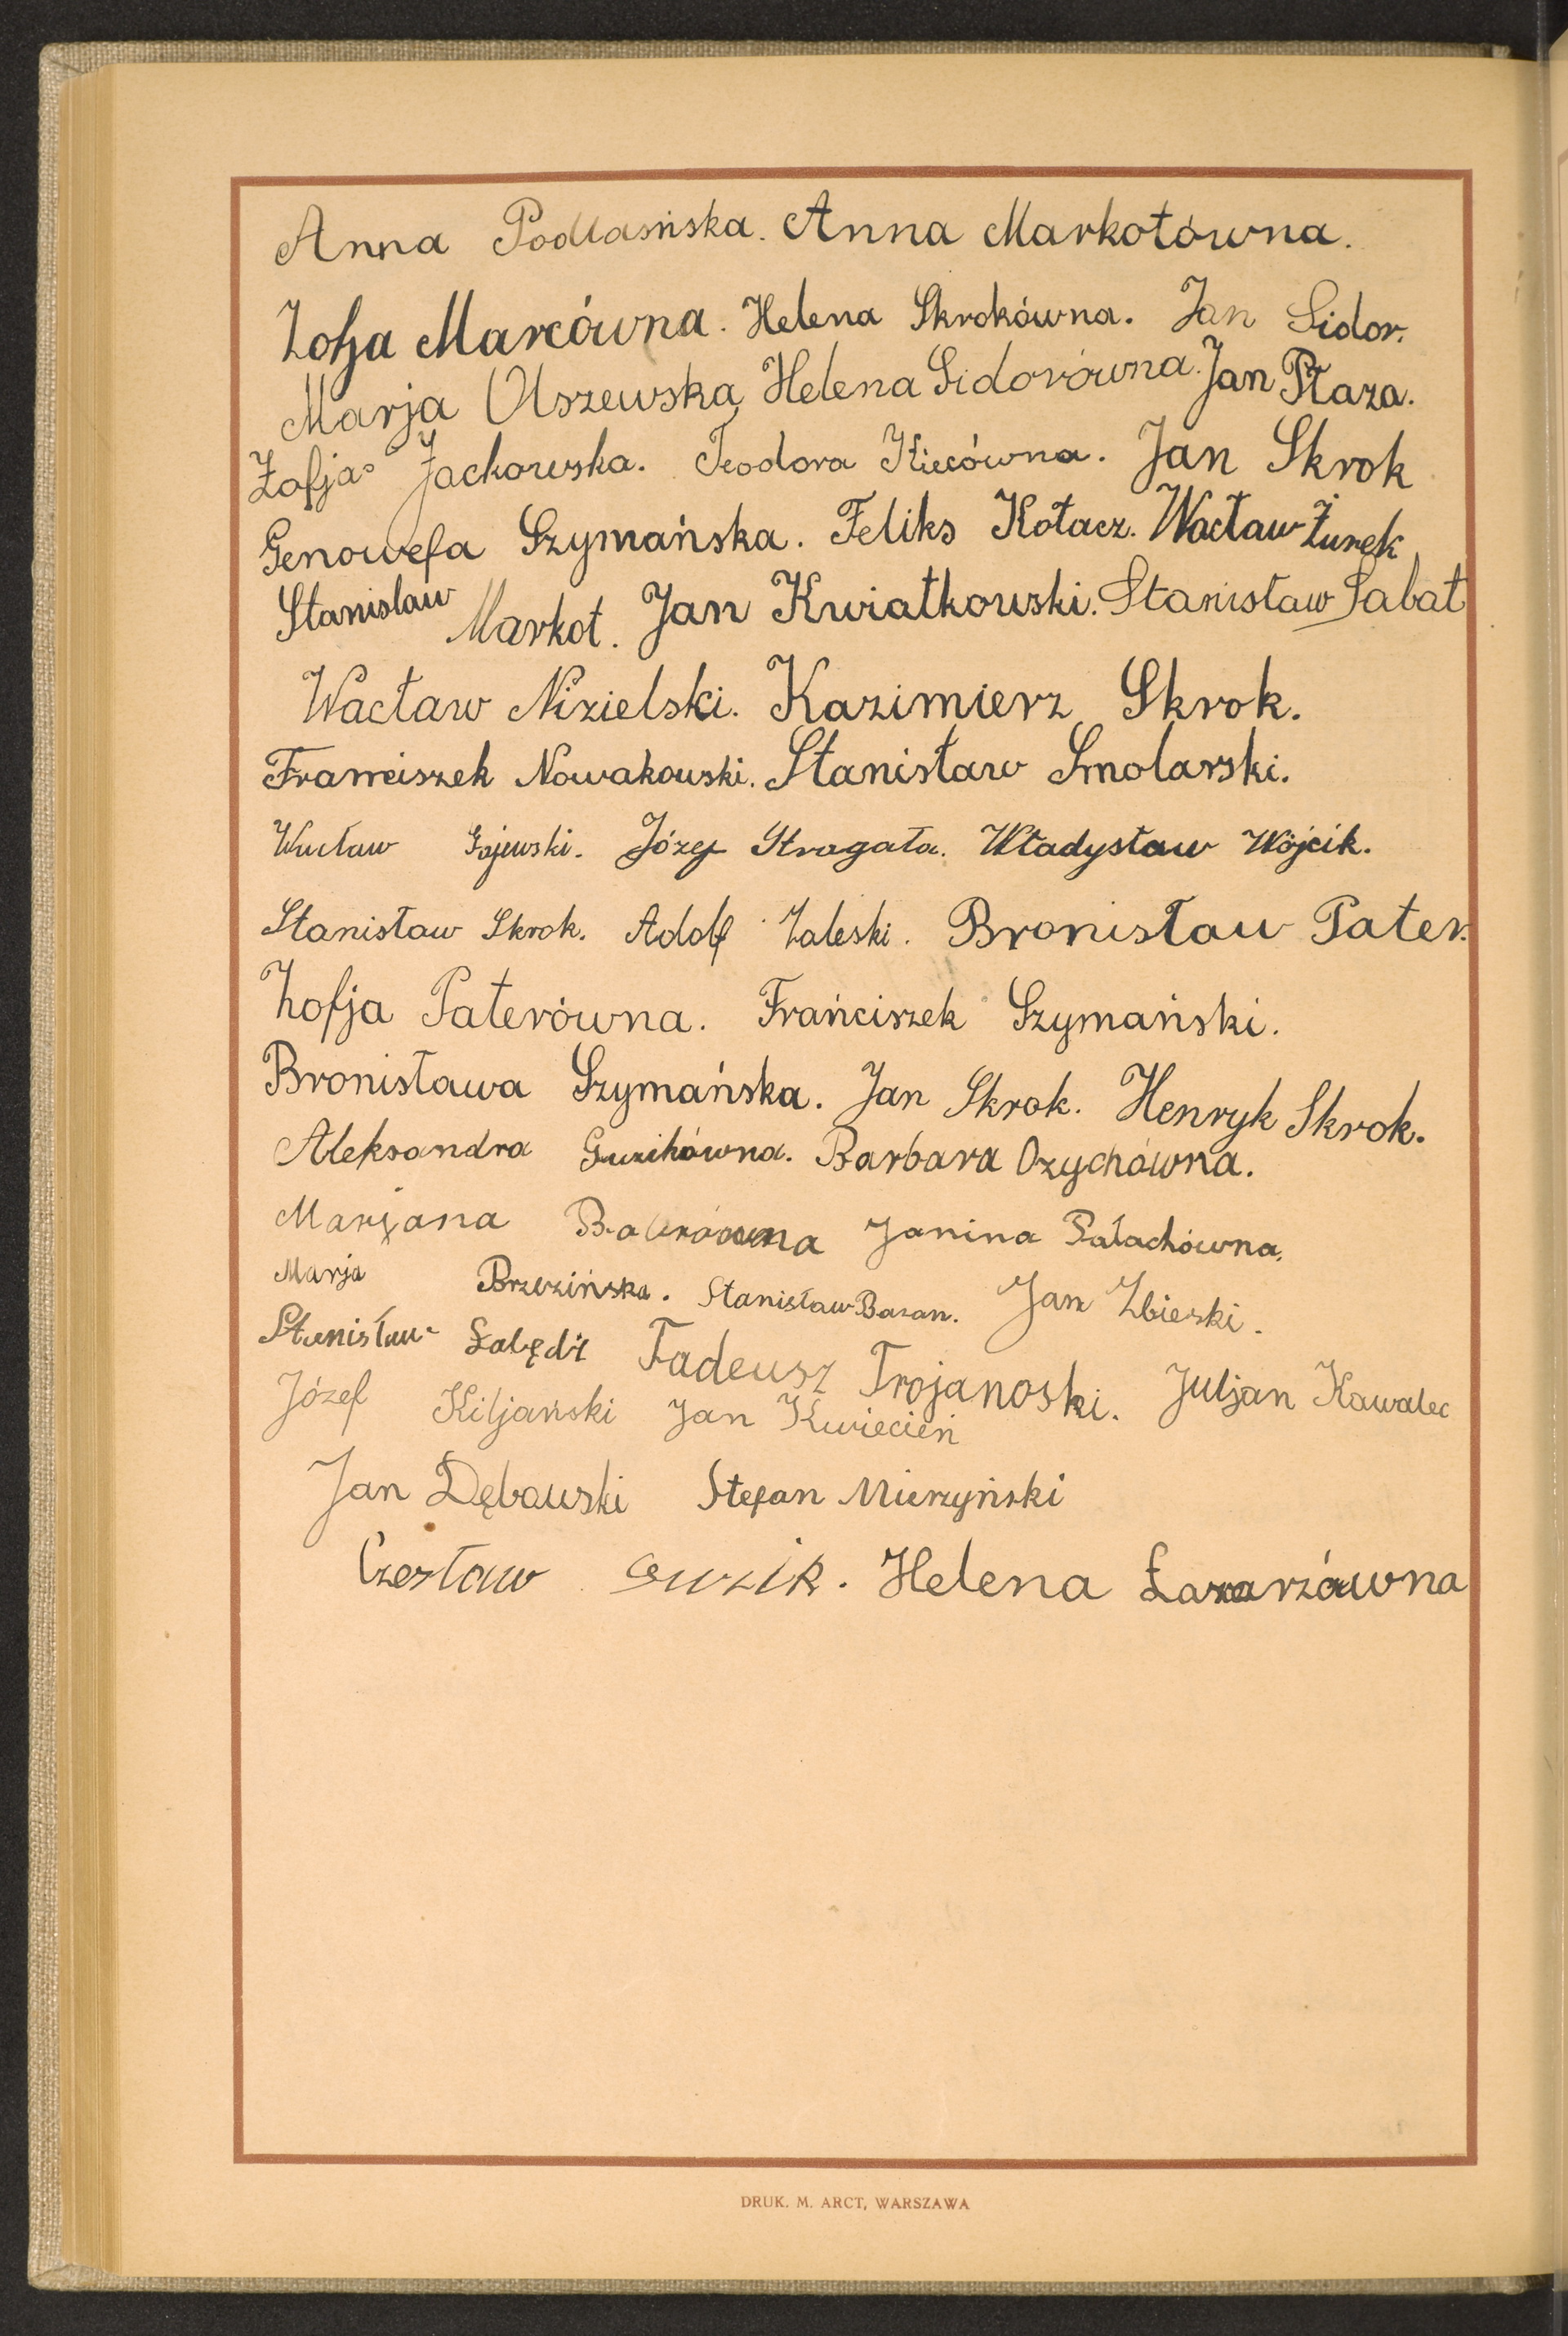 Anna Podlasińska. Anna Markotówna.
Zofja Marcówna. Helena Skrokówna. Jan Sidor.
Marja Olszewska Helena Sidorówna. Jan Płaza.
Zofja Jackowska. Teodora Kiecówna. Jan Skrok
Genowefa Szymańska. Feliks Kołacz. Wacław Żurek
Stanisław Markot. Jan Kwiatkowski. Stanisław Sabat
Wacław Nizielski. Kazimierz Skrok.
Franciszek Nowakowski. Stanisław Smolarski.
Wacław Gajewski. Józef Stragała. Władysław Wójcik.
Stanisław Skrok. Adolf Zaleski. Bronisław Pater.
Zofja Paterówna. Frańciszek Szymański.
Bronisława Szymańska. Jan Skrok. Henryk Skrok.
Aleksandra Guzikówna. Barbara Ozychówna.
Marjana Janina Pałachówna.
Marja Brzezińska. Stanisław Bazan. Jan Zbierski.
Stanisław Łabędź Tadeusz Trojanoski. Juljan Kawalec
Józef Kiljański Jan Kwiecień
Jan Dębowski Stefan Mierzyński
Czesław Guzik. Helena
DRUK. M. ARCT, WARSZAWA